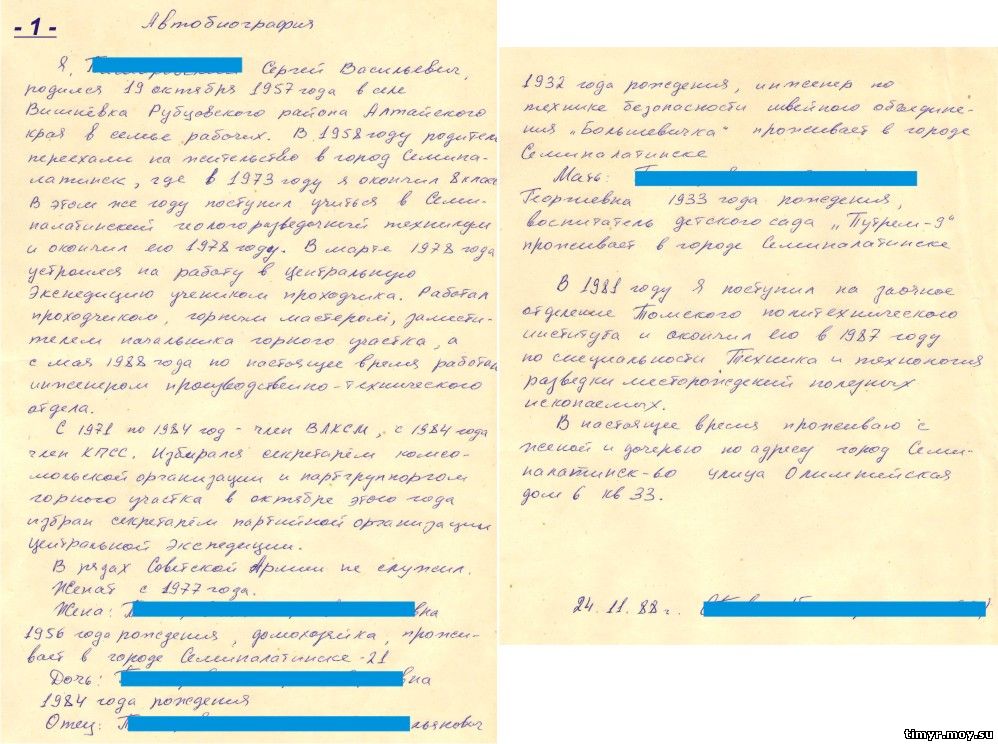 - 1 -
Автобиография
Я, Сергей Васильевич,
родился 19 октября 1957 года в селе
Вишнёвка Рубцовского района Алтайского
края в семье рабочих. В 1958 году родители
переехали на жительство в город Семипа-
латинск, где в 1973 году я окончил 8 класс
В этом же году поступил учиться в Семи-
палатинский геологоразведочный техникум
и окончил его 1978 году. В марте 1978 года
устроился на работу в Центральную
Экспедицию учеником проходчика. Работал
проходчиком, горным мастером, замести-
телем начальника горного участка, а
с мая 1988 года по настоящее время работаю
инженером производственно-технического
отдела.
С 1971 по 1984 год - член ВЛКСМ, с 1984 года
член КПСС. Избирался секретарём комсо-
мольской организации и партгрупоргом
горного участка в октябре этого года
избран секретарём партийной организации
Центральной Экспедиции.
В рядах Советской Армии не служил.
Женат с 1977 года.
Жена: вна
1956 года рождения, домохозяйка, прожи-
вает в городе Семипалатинске-21
Дочь: вна
1984 года рождения
Отец: льянович
1932 года рождения, инженер по
технике безопасности швейного объедине-
ния „Большевичка“ проживает в городе
Семипалатинске
Мать:
Георгиевна 1933 года рождения,
воспитатель детского сада
проживает в городе Семипалатинске
В 1981 году я поступил на заочное
отделение Томского политехнического
института и окончил его в 1987 году
по специальности Техника и технология
разведки месторождений полезных
ископаемых.
В настоящее время проживаю с
женой и дочерью по адресу город Семи-
палатинск-60 улица Олимпийская
дом 6 кв 33.
24.11.88 г.
timyr.moy.su